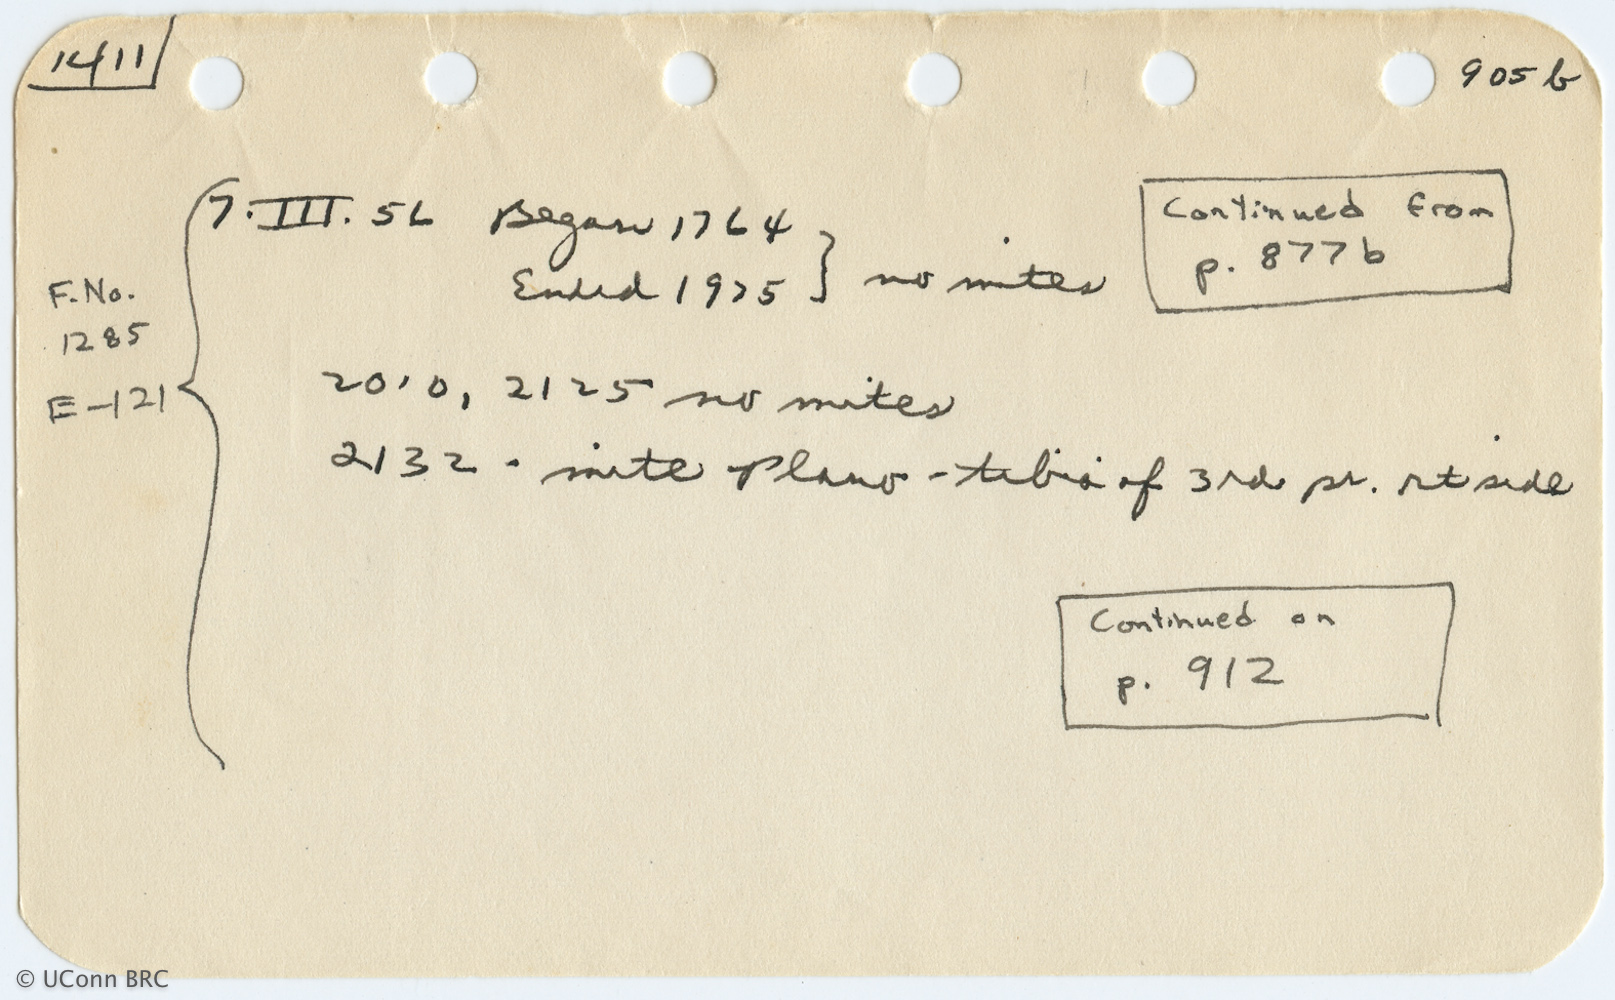 1411
905 b
7.III.56 Began 1764
Ended 1925 } no mites
Continued from
p. 877b
F.No.
1285
E-121
2010, 2125 no mites
2132 - mite Plano - tibia of 3rd pr. rt side
Continued on
p. 912
© UConn BRC